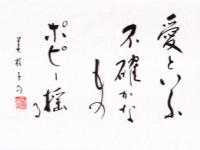 愛といふ
不確かな
もの
ポピー揺る
美枝子句